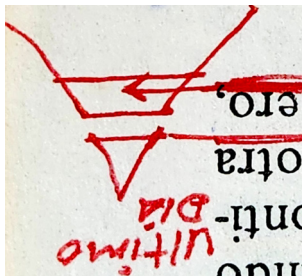 ndo
onti-
otra
ero,
ULTIMO
DIA